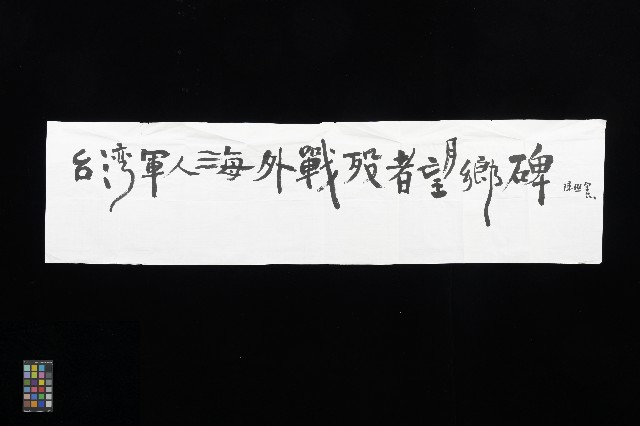 台湾軍人海外戰殁者望鄉碑